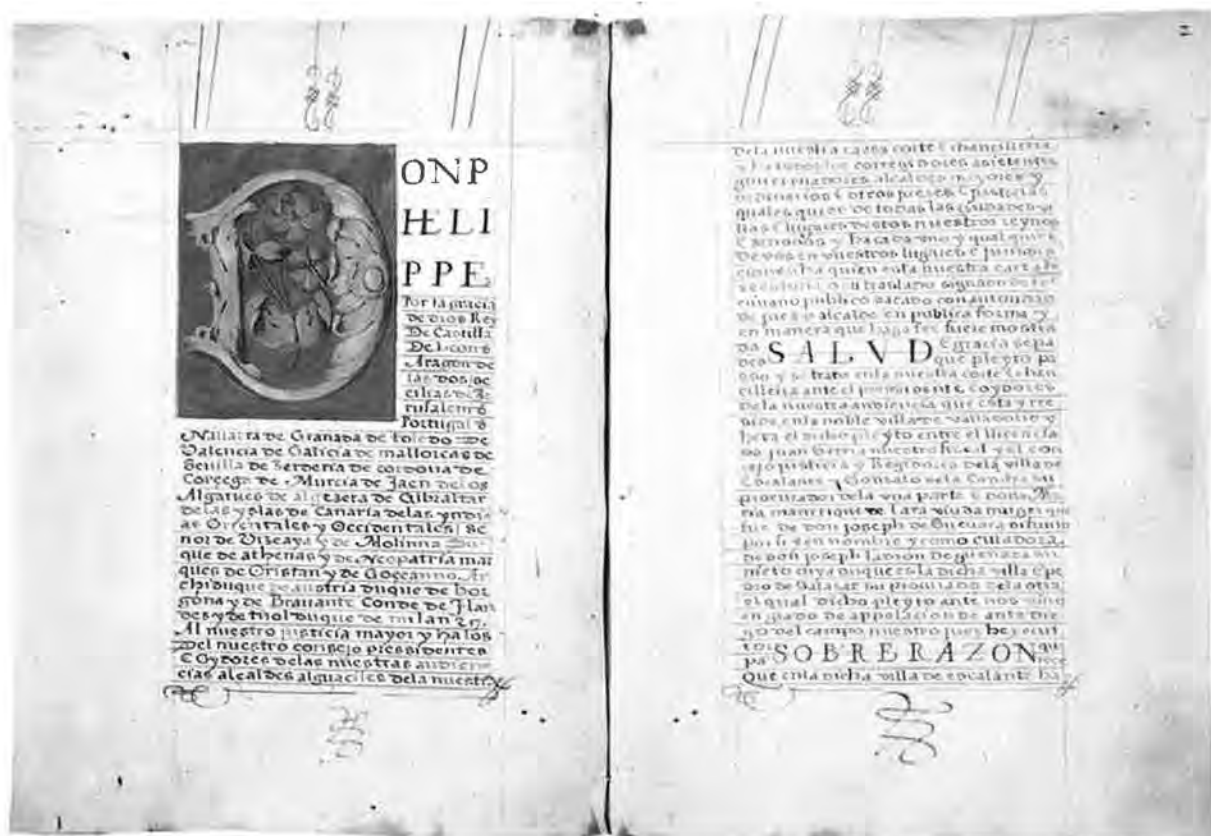 D
ONP
HELI
PPE
Por la gracia
de dios Rey
De Castilla
De Leon
Aragon de
las dos se
cilias de
rusalem
Portugal
Nauarra de Granada de toledo de
Valencia de Galicia de mallorcas de
Seuilla de Serdenia de cordoua de
Corcega de Murcia de Jaen de los
Algarues de algezira de Gibraltar
de las yslas de Canaria de las yndi
as Orientales y Occidentales se
ñor de Vizcaya y de Molinna du
que de athenas y de Neopatria mar
ques de Oristan y de Goceanno Ar
chiduque de austria duque de bor
gona y de Brauante Conde de Flan
des y de tirol duque de milan
Al nuestro justicia mayor y ha los
Del nuestro consejo pressidentes
E Oydores de las nuestras audien
cias alcaldes alguaciles dela nuestra
dela nuestra cassa corte E chancilleria
y ha todos los corregidores asistentes
gouernadores alcaldes mayores y
ordinarios E otros jueses E justicias
quales quier de todas las ciudades vi
llas E lugares destos nuestros reynos
E senorios y ha cada vno y qual quier
de vos en vuestros lugares E jurisdi
ciones ha quien esta nuestra carta
su traslado signado de es
criuano publico sacado con autoridad
de juez o alcalde en publica forma y
en manera que haga fee fuere mostra
da SALVD E gracia sepa
des que pleyto pa
so y se trato en la nuestra corte E chan
cilleria ante el pressidente E oydores
dela nuestra audiencia que esta y re
side en la noble villa de valladolid y
hera el dicho pleyto entre el llicencia
do Juan nuestro fiscal y el con
cejo justicia y Regidores dela villa de
Escalante y Gonzalo dela su
procurador dela vna parte E dona Ma
ria manrrique de Lara viuda muger que
fue de don joseph de Gueuara difunto
por si y en nombre y como curadora
de don joseph ladron de gueuara su
nieto cuya dize que es la dicha villa E pe
dro de Salazar su procurador dela otra
el qual dicho pleyto ante nos vino
en grado de appelacion de ante die
go del campo nuestro juez
SOBRE RAZON
Que en la dicha villa de escalante ha